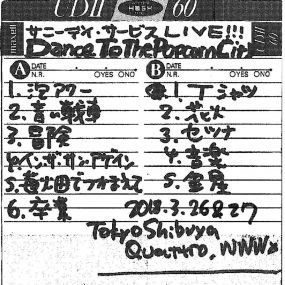 UDII HIGH 60
maxell
サニーデイ・サービス LIVE!!!
Dance To The Popcorn City
UDII 60
A DATE
N.R. OYES ONO
B DATE
N.R. OYES ONO
1. 泡アワー
2. 青い戦車
3. 冒険
4. インザ・サン・アゲイン
5. 苺畑でつかまえて
6. 卒業
1. Tシャツ
2. 花火
3. セツナ
4. 音楽
5. 金星
2018.3.26&27
Tokyo Shibuya
Quattro, WWWx